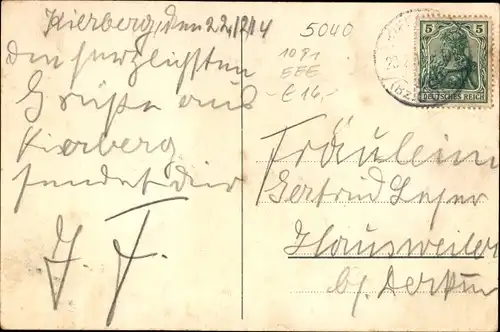 Kierberg, den 22/2 14
Die herzlichsten
Grüße aus
Kierberg
sendet dir
J. F.
5040
1091
EEE
€ 14,-
5 5
DEUTSCHES REICH
Fräulein
Gertrud
Hausweiler
bei